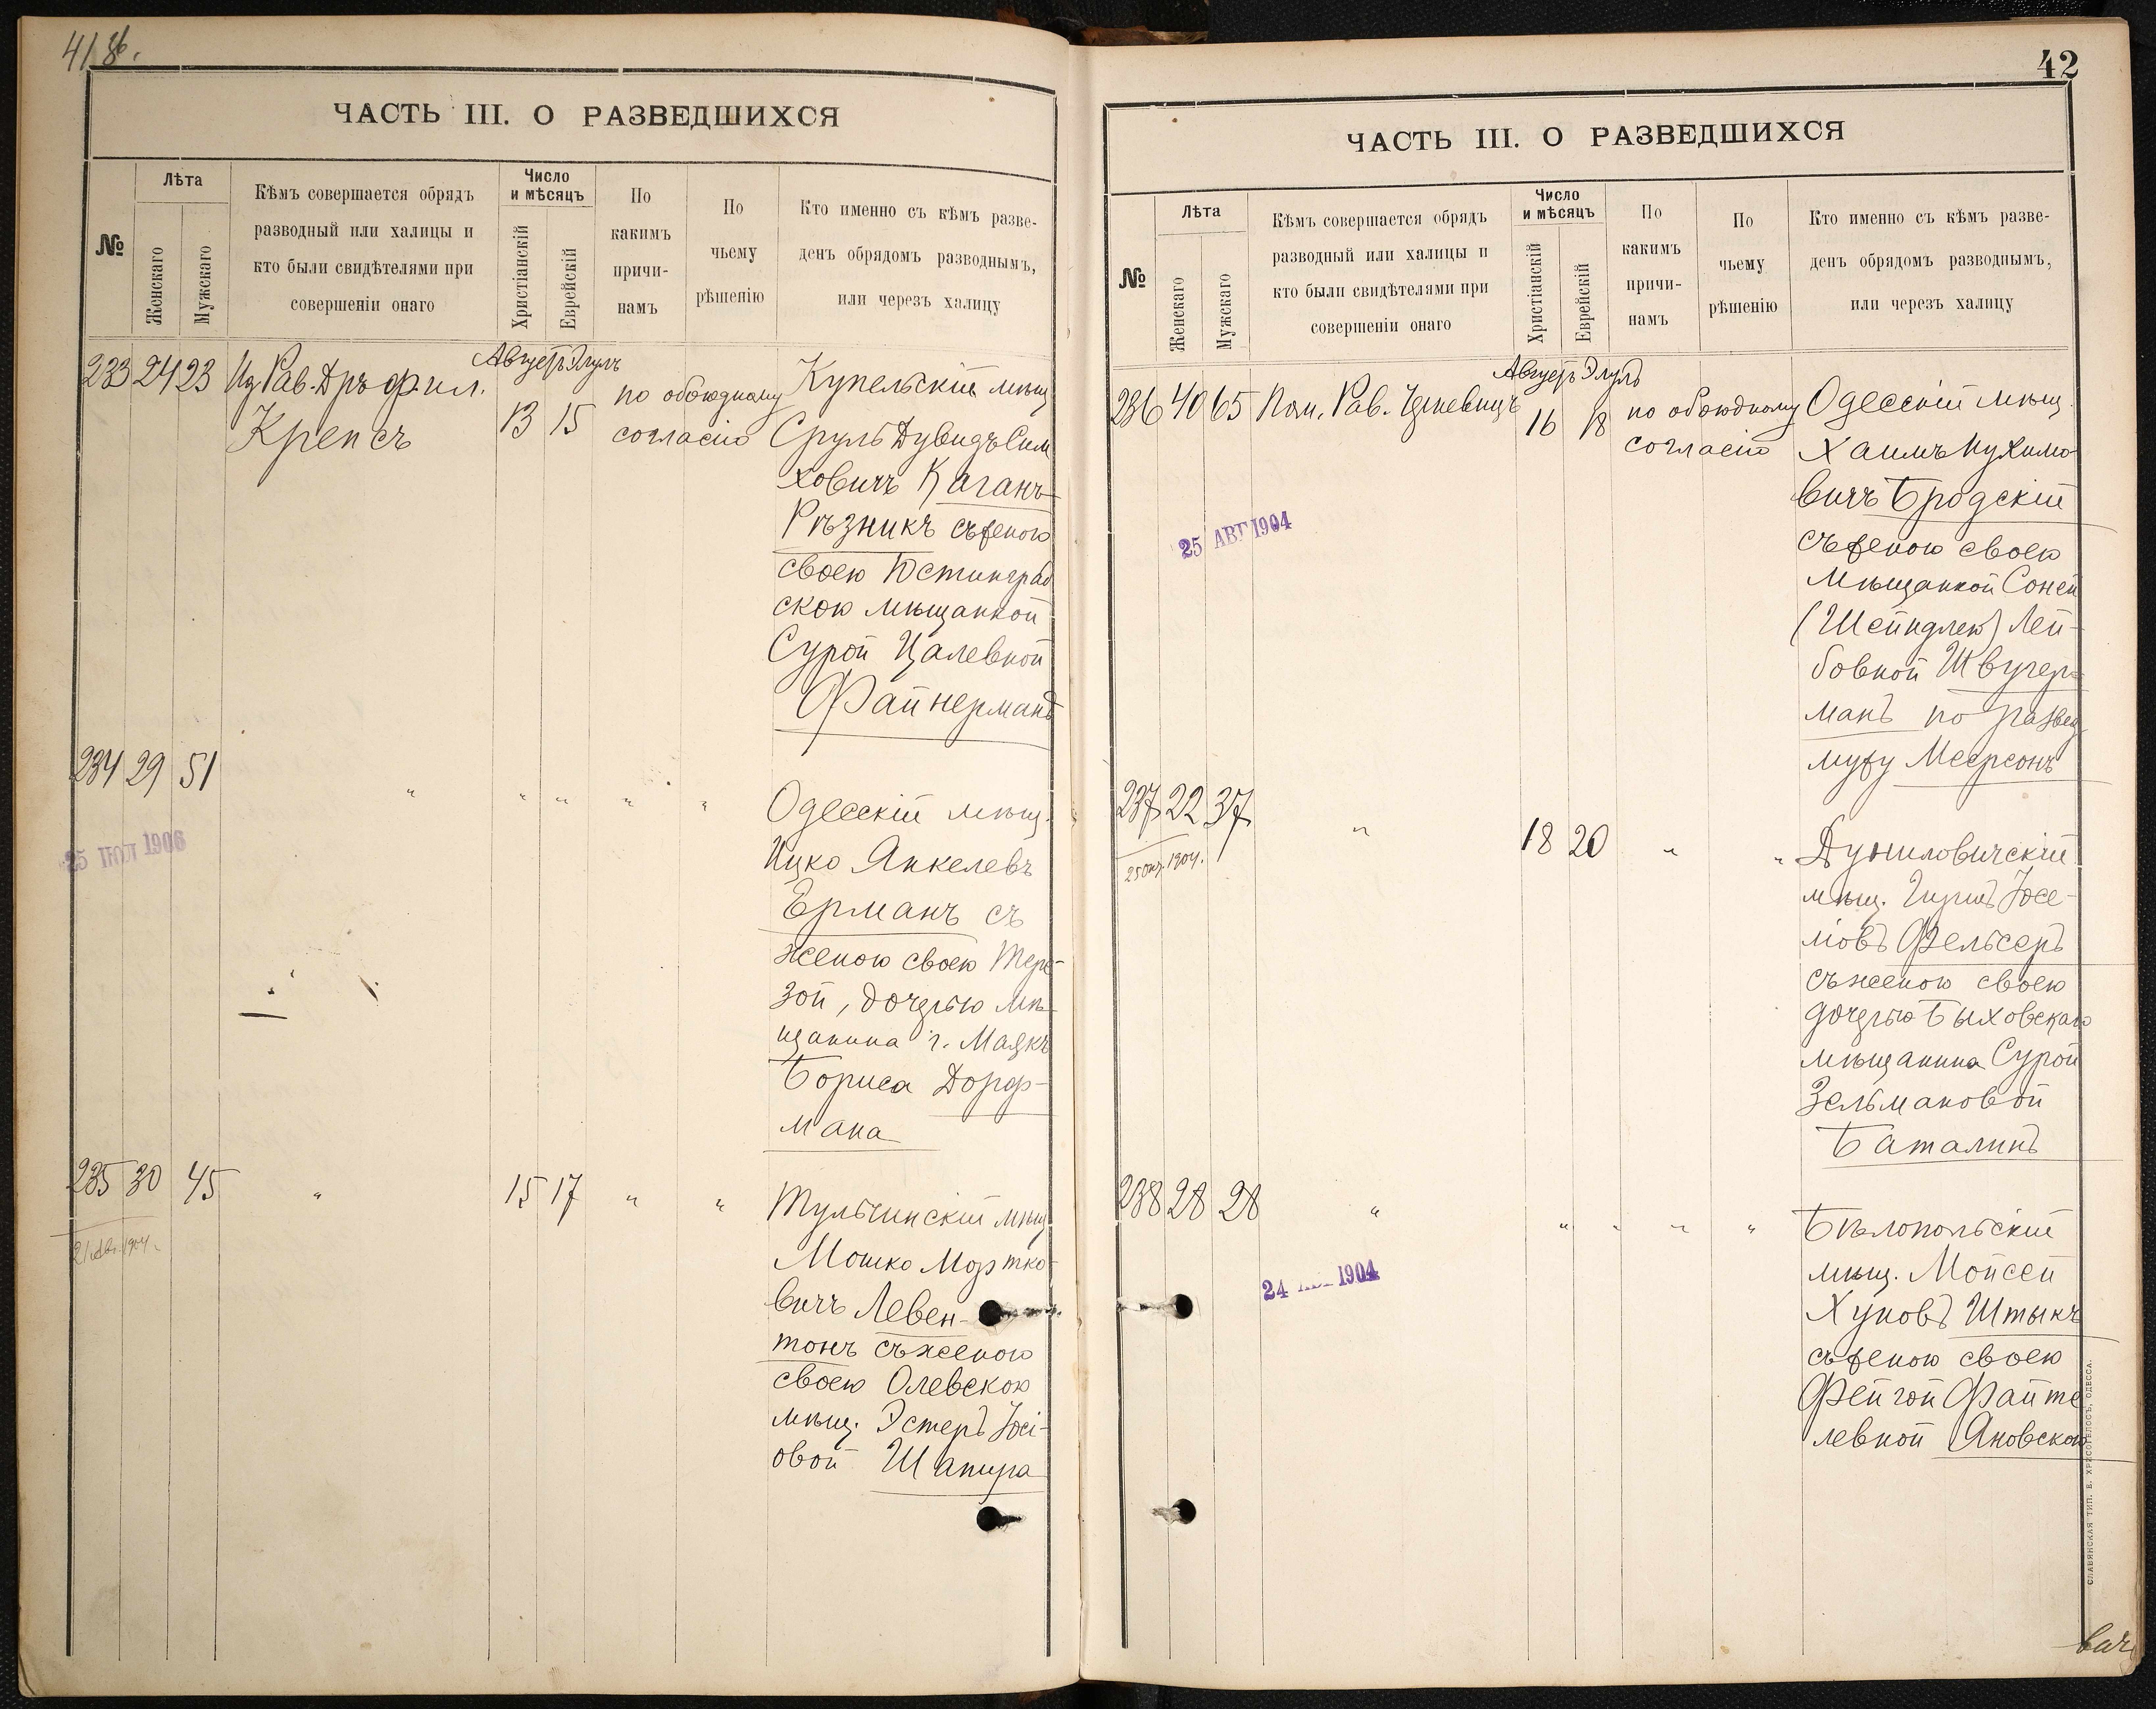 41 об.
ЧАСТЬ III. О РАЗВЕДШИХСЯ
№
Лѣта
Женскаго
Мужскаго
Кѣмъ совершается обрядъ
разводный или халицы и
кто были свидѣтелями при
совершеніи онаго
Число
и мѣсяцъ
Христіанскій
Еврейскій
По
какимъ
причи-
намъ
По
чьему
рѣшенію
Кто именно съ кѣмъ разве-
денъ обрядомъ разводнымъ,
или черезъ халицу
233 24 23
Рав. Дръ фил.
Крепсъ
Августъ Элулъ
13 15
по обоюдному
согласію
Купельскій мѣщ
Сруль Дувидъ Сим
ховичъ Каганъ-
Рѣзникъ съ женою
своею Юстинград
скою мѣщанкой
Сурой Цалевной
Файнерманъ
234 29 51
" " " " "
Одесскій мѣщ.
Ицко Янкелевъ
Ерманъ съ
женою своею Тере-
зой, дочерью мѣ-
щанина г. Маякъ
Бориса Дорф-
мана
25 ІЮЛ 1906
235 30 45
" 15 17 " "
Тульчинскій мѣщ
Мошко Мортко-
вичъ Левен-
тонъ съ женою
своею Олевскою
мѣщ. Эстеръ Іосі-
овой Шапира
21 Авг. 1904.
42
ЧАСТЬ III. О РАЗВЕДШИХСЯ
№
Лѣта
Женскаго
Мужскаго
Кѣмъ совершается обрядъ
разводный или халицы и
кто были свидѣтелями при
совершеніи онаго
Число
и мѣсяцъ
Христіанскій
Еврейскій
По
какимъ
причи-
намъ
По
чьему
рѣшенію
Кто именно съ кѣмъ разве-
денъ обрядомъ разводнымъ,
или черезъ халицу
236 40 65
Пом. Рав.
Августъ Элулъ
16 18
по обоюдному
согласію
Одесскій мѣщ.
Хаимъ Нухимо
вичъ Бродскій
съ женою своею
мѣщанкой Соней
(Шейндлею) Лей-
бовной Швугер-
манъ по развед
мужу Меерсонъ
25 АВГ 1904
237 22 37
" 18 20 " "
Дуниловичскій
мѣщ. Гиршъ Іосе-
ліовъ Фельсеръ
съ женою своею
дочерью Быховскаго
мѣщанина Сурой
Зельмановой
Баталинъ
25 Окт. 1904.
238 28 28
" " " " "
Бѣлопольскій
мѣщ. Мойсей
Хуновъ Штыкъ
съ женою своею
Фейгой Файте
левной Яновскою
24 1904
СЛАВЯНСКАЯ ТИП. Е. ХРИСОГЕЛОСЪ, ОДЕССА.